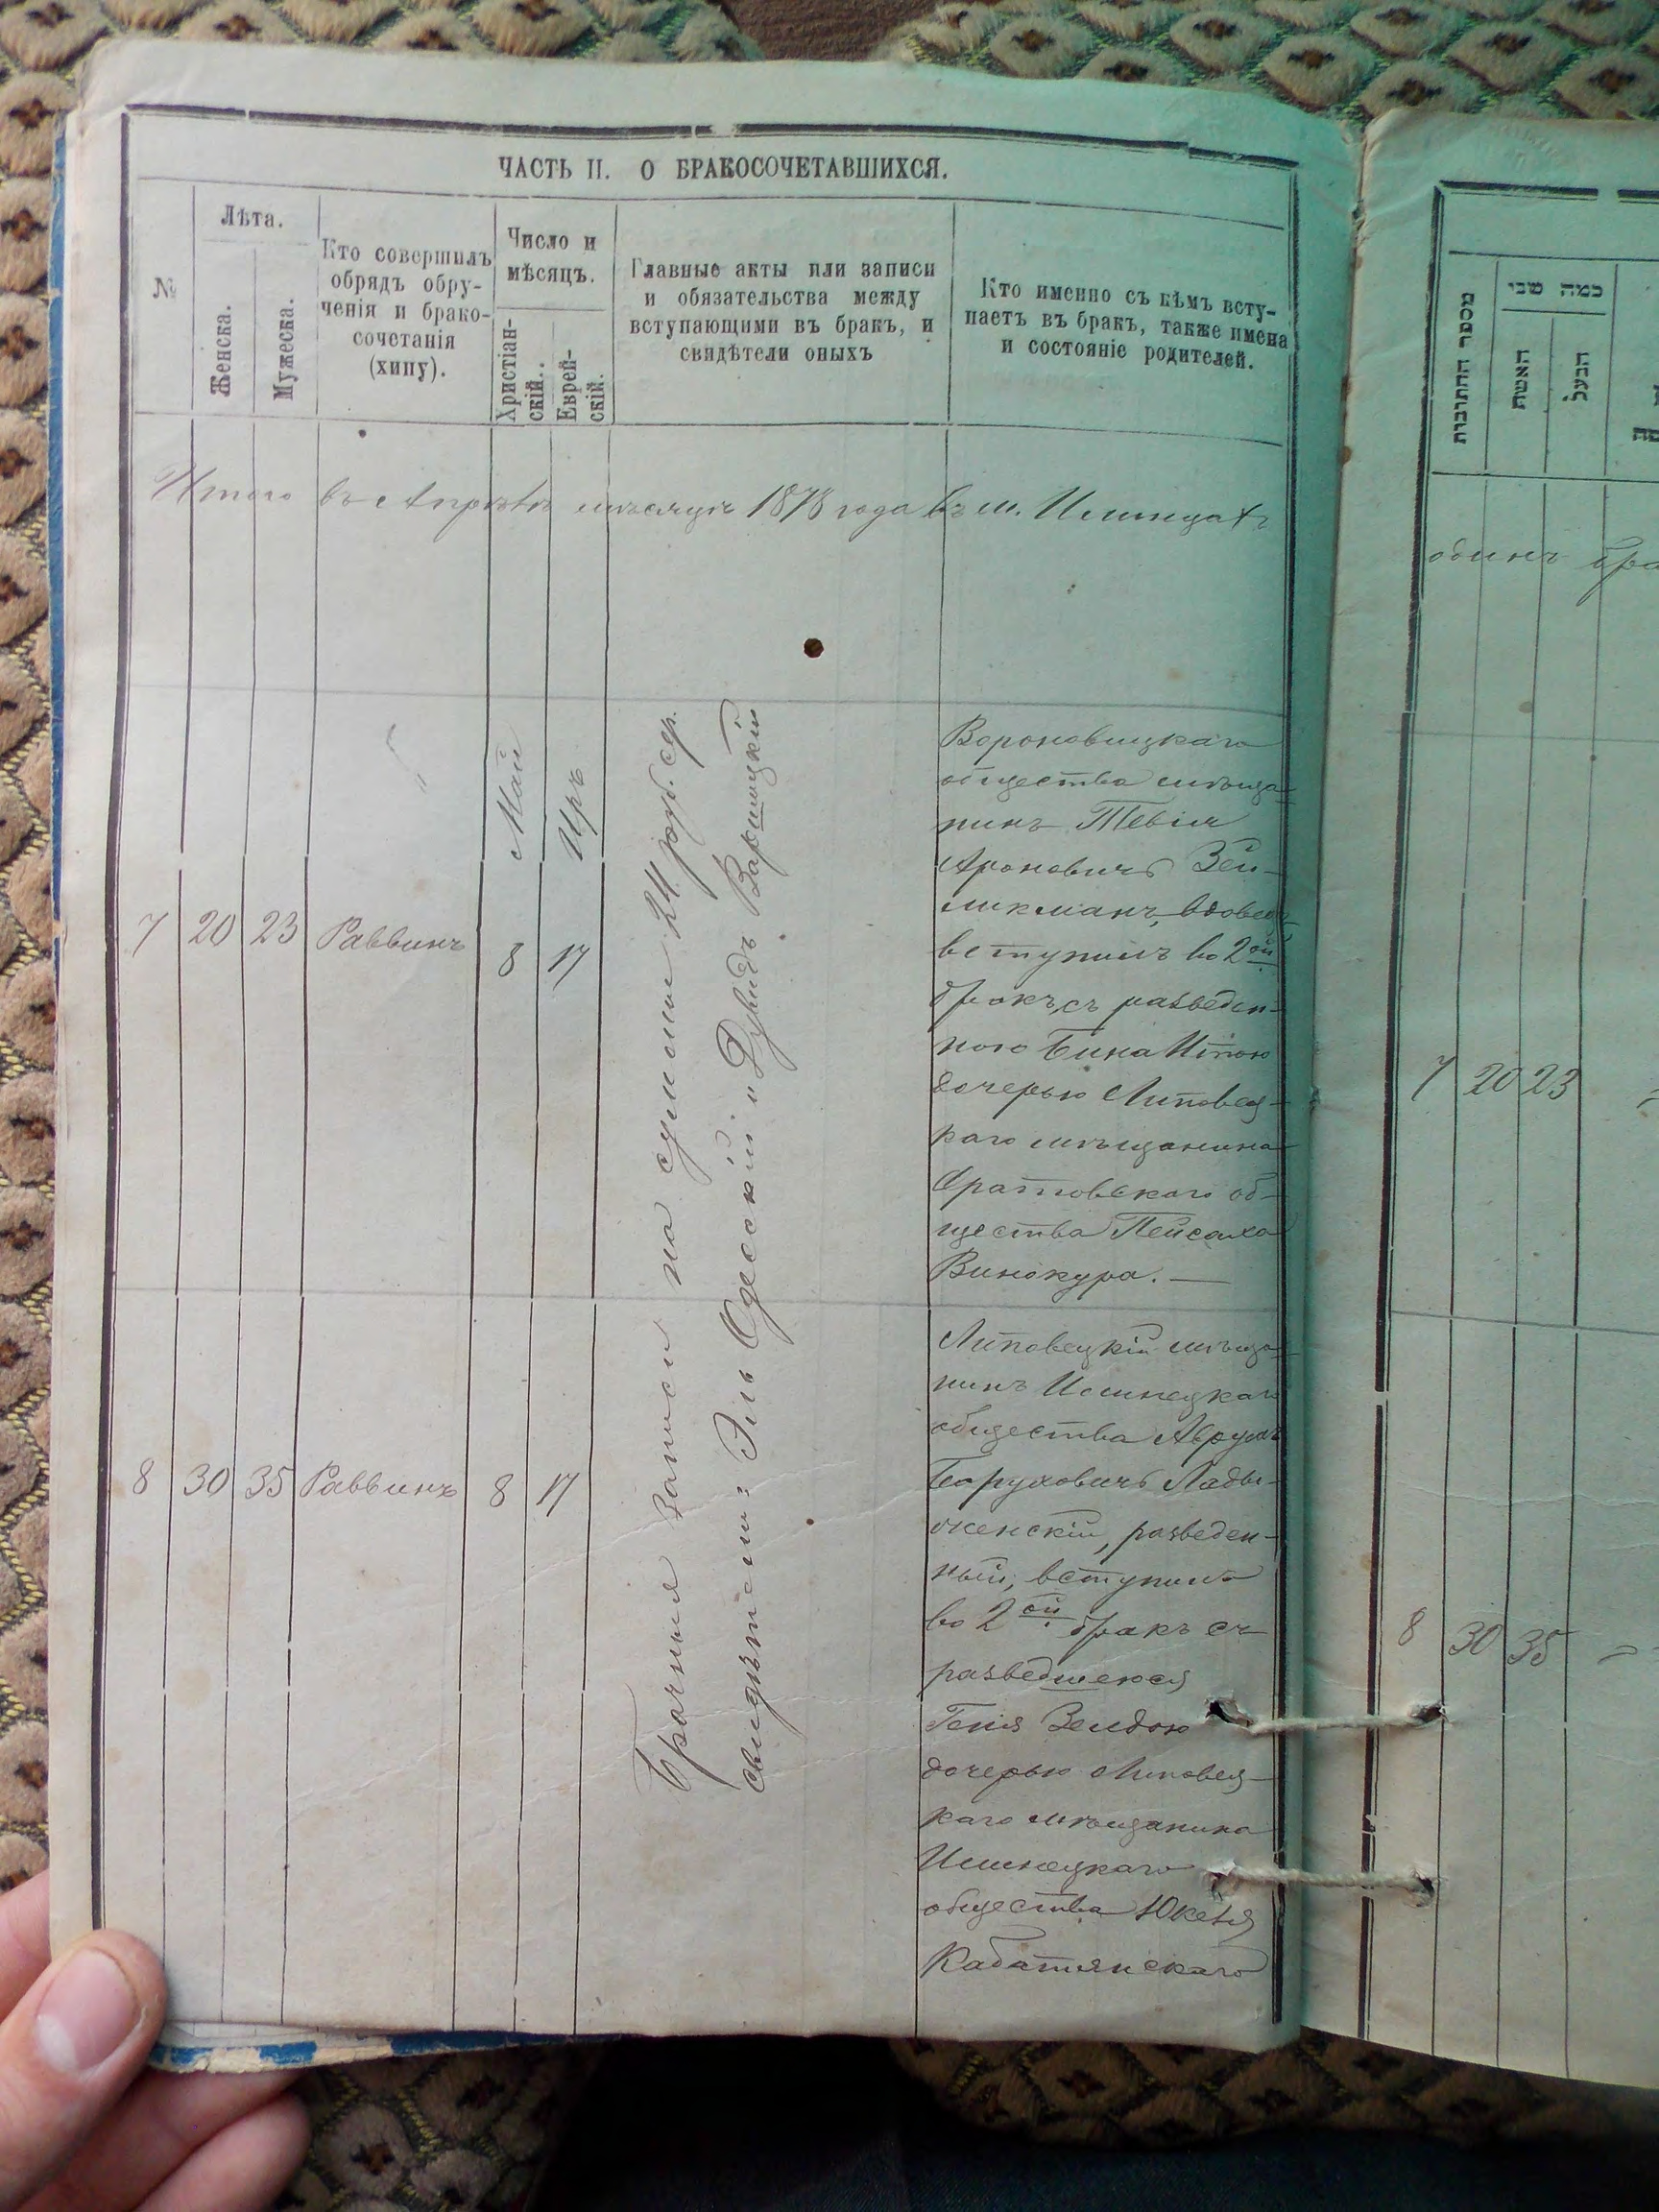 ЧАСТЬ II. О БРАКОСОЧЕТАВШИХСЯ.
№
Лѣта.
Женска.
Мужеска.
Кто совершилъ
обрядъ обру-
ченія и брако-
сочетанія
(хипу).
Число и
мѣсяцъ.
Христіан-
скій.
Еврей-
скій.
Главные акты или записи
и обязательства между
вступающими въ бракъ, и
свидѣтели оныхъ
Кто именно съ кѣмъ всту-
паетъ въ бракъ, также имена
и состояніе родителей.
Итого въ Апрѣлѣ мѣсяцѣ 1878 года въ м. Илинцахъ
Май
Иръ
7 20 23 Раввинъ 8 17
Брачныя записи на суммы 24 руб. сер.
свидѣтели: Эль Одесскій и Дувидъ Варшицкій
Вороновицкаго
общества мѣща-
нинъ Тевія
Ароновичъ Зей-
ликманъ, вдовецъ
вступилъ во 2ой
бракъ, съ разведен-
ною Бина Итою
дочерью Липовец-
каго мѣщанина
Оратовскаго об-
щества Пейсаха
Винокура. —
8 30 35 Раввинъ 8 17
Липовецкій мѣща-
нинъ Илинецкаго
общества Аврумъ
Боруховичъ Лады-
женскій, разведен-
ный, вступилъ
во 2ой бракъ съ
разведшеюся
Геня Зелдою
дочерью Липовец-
каго мѣщанина
Илинецкаго
общества
Кабатянскаго
מספר החתונות
כמה שני
האשה
הבעל
одинъ бра
7 20 23
8 30 35